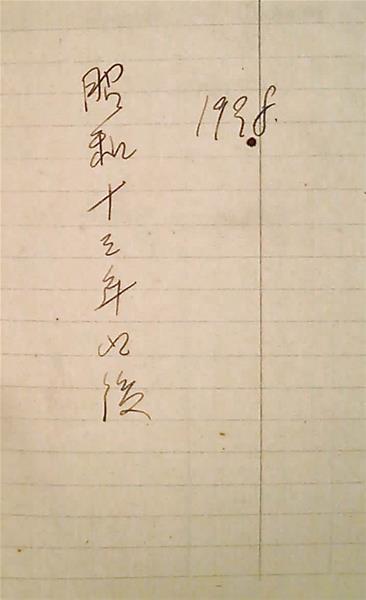 1938.
昭和十三年以後